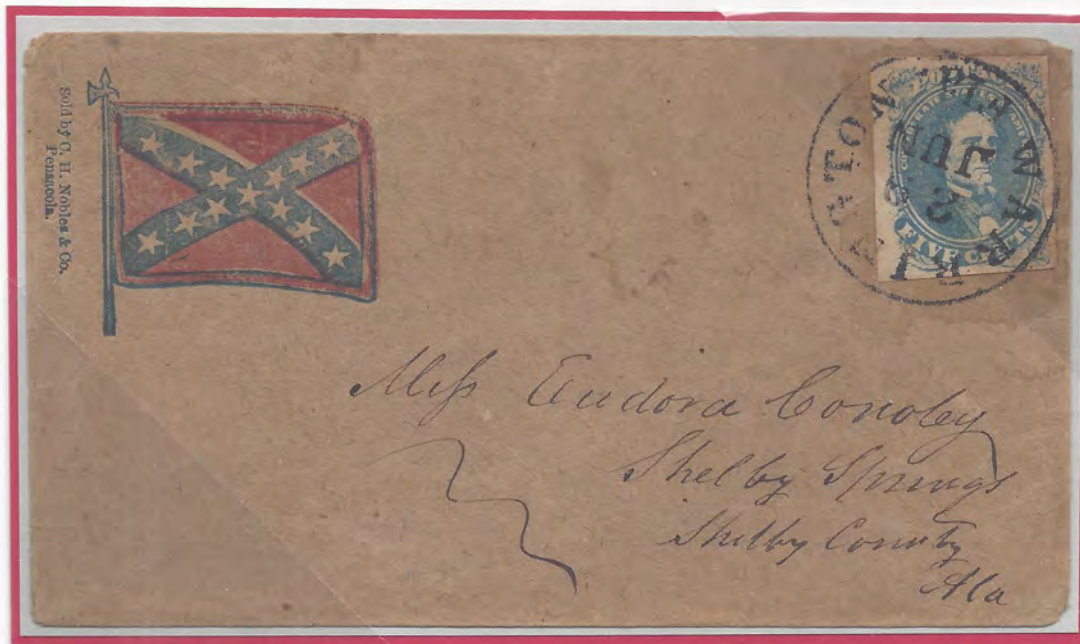 Sold by C. H. Nobles & Co,
Pensacola.
WARRINGTON FLA
JUN
FIVE CENTS
Miss Eudora Conoley
Shelby Springs
Shelby County
Ala